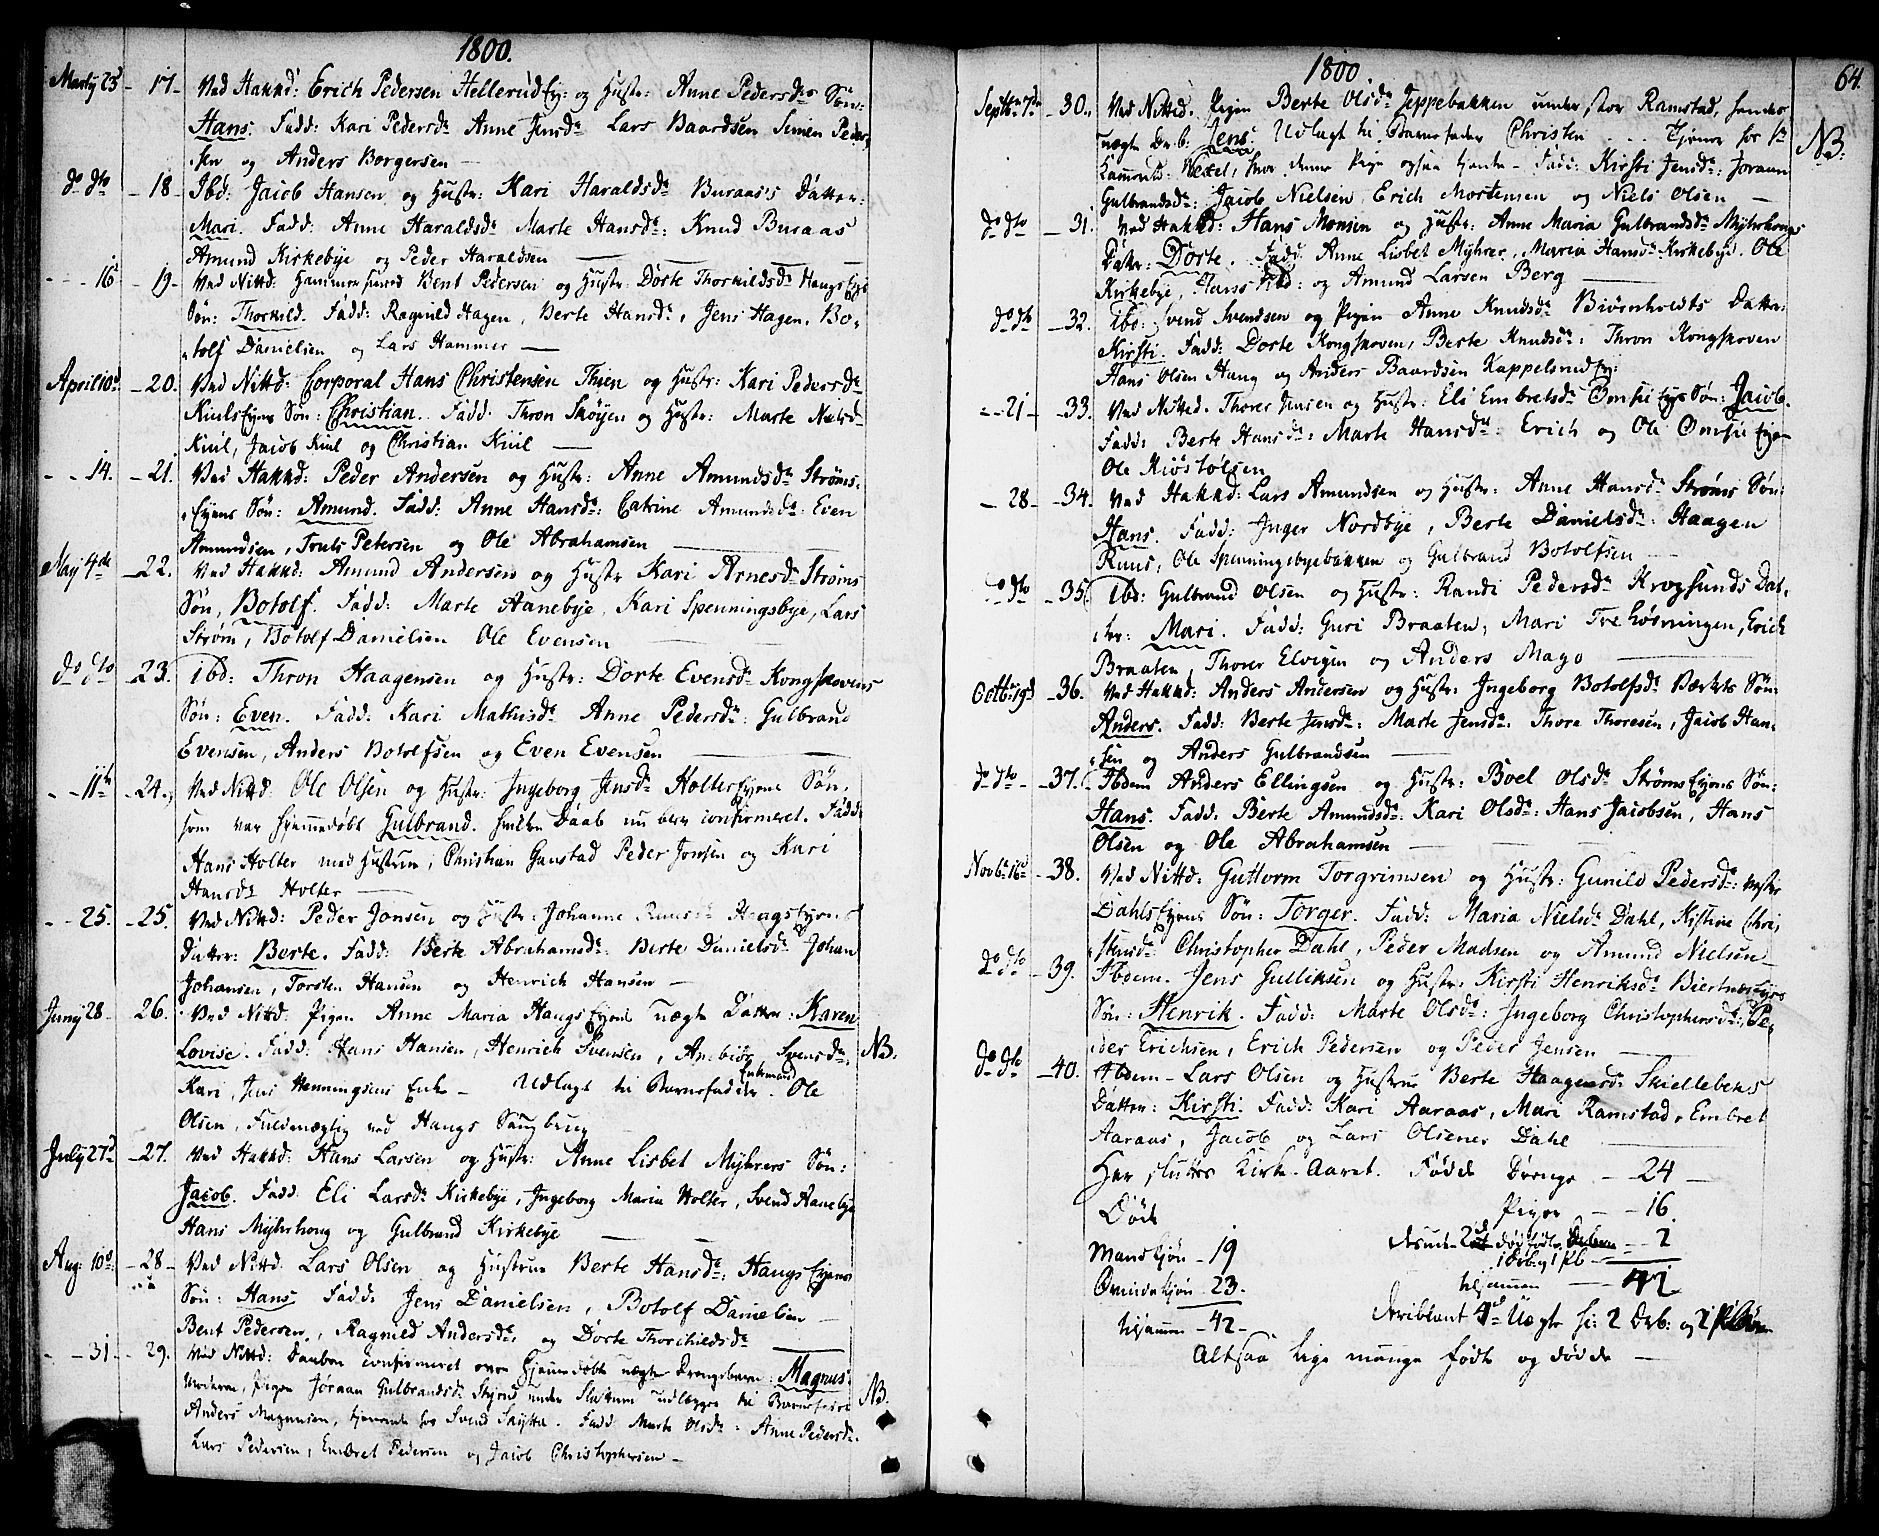 1800.
Marty 23d - 17 - Ved Hakkd: Erich Pedersen HellerudEy: og Hustr: Anne Pedersdr Søn:
Hans. Fadd: Kari Pedersdr Anne Jensdr Lars Baardsen Simen Peder,
,sen og Anders Borgersen —
do dto - 18 - Ibd: Jacob Hansen og Hustr: Kari Haraldsdr Buraas's Datter:
Mari. Fadd: Anne Haraldsdr Marte Hansdr: Knud Buraas
Amund Kirkebye og Peder Haraldsen —
- - - 16 - 19 - Ved Nittd: Hammersmed Bent Pedersen og Hustr: Dorte Thorkildsdr Haugs Eye
Søn: Thorkild. Fadd: Ragnild Hagen, Berte Hansdr, Jens Hagen, Bo,
,tolf Danielsen og Lars Hammer —
April 10d - 20. Ved Nittd: Corporal Hans Christensen Thien og Hustr: Kari Pedersdr
KiulsEyens Søn: Christian. Fadd: Thron Skøyen og Hustr: Marte Nielsd
Kiul, Jacob Kiul og Christian Kiul —
- - 14. - 21. Ved Hakkd: Peder Andersen og Hustr: Anne Amundsdr Strøms,
,Eyens Søn: Amund. Fadd: Anne Hansdr: Catrine Amundsdr: Even
Amundsen, Truls Petersen og Ole Abrahamsen —
May 4de - 22. Ved Hakkd: Amund Andersen og Hustr Kari Arnesdr Strøms
Søn, Botolf. Fadd: Marte Aanebye, Kari Spenningsbye, Lars
Strøm, Botolf Danielsen Ole Evensen
do dto - 23. Ibd: Thron Haagensen og Hustr: Dorte Evensdr Kongskovens
Søn: Even. Fadd: Kari Mathisdr Anne Pedersdr: Gulbrand
Evensen, Anders Botolfsen og Even Evensen —
- - 11te - 24. Ved Nittd: Ole Olsen og Hustr: Ingeborg Jensdr HolterEyens Søn,
som var hjemmedøbt Gulbrand. hvilken Daab nu blev confirmeret. Fadd:
Hans Holter med Hustrue, Christian Ganstad Peder Jonsen og Kari
Hansdr Holter —
- - 25. - 25. Ved Nittd: Peder Jonsen og Hustr: Johanne HaugsEyens
Datter: Berte. Fadd: Berte Abrahamsdr: Berte Danielsdr Johan
Johansen, Torsten Hansen og Henrich Hansen —
Juny 28 - 26. Ved Nittd: Pigen Anne Maria HaugsEyens uægte Datter: Karen
Lovise. Fadd: Hans Hansen, Henrich Svensen, Anbiør Svensdr: NB.
Kari, Jens Henningsens Enke - Udlagt til Barnefader Enkemand Ole
Olsen, Fuldmægtig ved Haugs Saugbrug —
July 27d - 27. Ved Hakkd: Hans Larsen og Hustr: Anne Lisbet Myhrers Søn:
Jacob. Fadd: Eli Larsdr Kirkebye, Ingeborg Maria Holter, Svend Aanebye
Hans Myhrhoug og Gulbrand Kirkebye —
Aug: 10d: - 28 - Ved Nittd: Lars Olsen og Hustrue Berte Hansdr: HaugsEyens
Søn: Hans Fadd: Jens Danielsen, Botolf Danielsen
Bent Pedersen, Ragnild Andersdr, og Dorte Thorchildsdr
- - 31 - 29. Ved Nittd: Daaben confirmeret over hjemmedøbt uægte Drengebarn: Magnus.
Moderen, Pigen Jøraan Gulbrandsdr under udlægges til Barnefader NB.
Anders Magnusen, tjenende hos Svend Skytte. Fadd: Marte Olsdr: Anne Pedersdr.
Lars Pedersen, Embret Pedersen og Jacob Christophersen —
1800 64.
Septbr 7de - 30. Ved Nittd. Pigen Berte Olsdr Jeppebakken under stor Ramstad, hendes
uægte Dr.b: Jens. Udlagt til Barnefader Christen . . . Tjener hos Hr NB:
Wexel, hvor denne Pige ogsaa tjente - Fadd: Kirsti Jensdr: Joraan
Gulbrandsdr: Jacob Nielsen, Erich Mortensen og Niels Olsen —
do dto - 31. Ved Hakkd: Hans Monsen og Hustr: Anne Maria Gulbrandsdr Myhrhougs
Datr: Dorte. Fadd: Anne Lisbet Myhrer, Maria Hansdr Kirkebye. Ole
Kirkebye, Hans ibd: og Amund Larsen Berg —
do dto - 32. Ibd: Svend Svendsen og Pigen Anne Knudsdr Biørnholdts Datter:
Kirsti. Fadd: Dorte Kongskoven, Berte Knudsdr: Thron Kongskoven
Hans Olsen Haug og Anders Baardsen KappelsrudEy:
- - 21 - - 33. Ved Nittd. Thorer Jensen og Hustr: Eli Embretsdr Eye Søn: Jacob.
Fadd: Berte Hansdr: Marte Hansdr: Erich og Ole
Ole Kiøstølsen
- 28 - - 34. Ved Hakkd: Lars Amundsen og Hustr: Anne Hansdr Strøms Søn:
Hans. Fadd: Inger Nordbye, Berte Danielsdr: Haagen
Ruus, Ole Spenningsbyebakken og Gulbrand Botolfsen —
do dto - 35. Ibd: Gulbrand Olsen og Hustr: Randi Pedersdr Krogsunds Dat,
,ter: Mari. Fadd: Guri Braaten, Mari Treløsningen, Erich
Braaten, Thorer Elvigen og Anders Mago —
Octbr 19d - 36. Ved Hakkd: Anders Andersen og Hustr: Ingeborg Botolfsdr Værkets Søn:
Anders. Fadd: Berte Jensdr: Marte Jensdr: Thore Thoresen, Jacob Han,
,sen og Anders Gulbrandsen —
do dto - - 37. Ibdem Anders Ellingsen og Hustr: Boel Olsdr StrømsEyens Søn:
Hans. Fadd: Berte Amundsdr: Kari Olsdr: Hans Jacobsen, Hans
Olsen og Ole Abrahamsen —
Novbr 16d - 38. Ved Nittd: Guttorm Torgrimsen og Hustr: Gunild Pedersdr: Vester
DahlsEyens Søn: Torger. Fadd: Maria Nielsdr Dahl, Kistine Chri,
,stensdr Christopher Dahl, Peder Madsen og Amund Nielsen —
do dto - 39. Ibdem. Jens Gulliksen og Hustr: Kirsti Henriksdr BiertnesEyes
Søn: Henrik. Fadd: Marte Olsdr: Ingeborg Christophersdr: Pe,
,der Erichsen, Erich Pedersen og Peder Jensen
do dto - 40. Ibdem - Lars Olsen og Hustrue Berte Haagensdr: Skiellebeks
Datter: Kirsti. Fadd: Kari Aaraas, Mari Ramstad, Embret
Aaraas, Jacob og Lars Olsener Dahl —
Her sluttes Kirke-Aaret. Fødde Drenge - 24 —
Døde Piger - - 16.
Mandkjøn - 19 desuden 2de dødfødte - - 2
Qvindekjøn 23. 1 D.b: og 1 P.b —
tilsammen - 42 - tilsammen — 42
deriblant 4 Uægte s: 2 Dr.b: og 2
Altsaa lige mange fødte og døde —